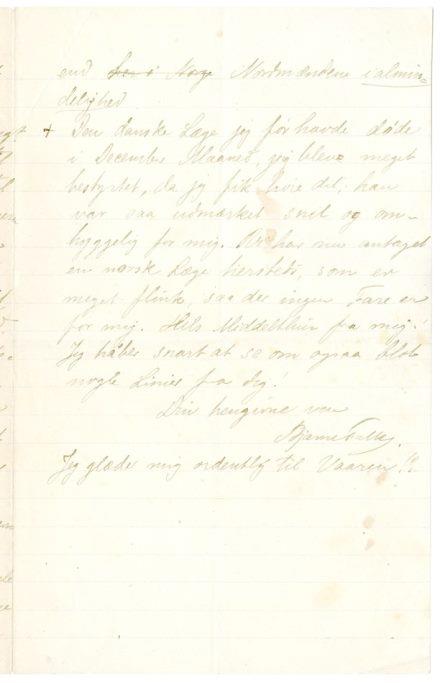 end her i Norge Nordmændene i almin-
delighed
+ Den danske Læge jeg før havde døde
i December Maaned, jeg blev meget
bestyrtet, da jeg fik høre det; han
var saa udmærket snil og om-
hyggelig for mig. har nu antaget
en norsk Læge hersteds, som er
meget flink, saa der ingen Fare er
for mig. Hils Middelthun fra mig!
Jeg håber snart at se om ogsaa blot
nogle Linier fra dig!
Din hengivne ven
Bjarne Falk.
Jeg glæde mig ordentlig til Vaaren!!